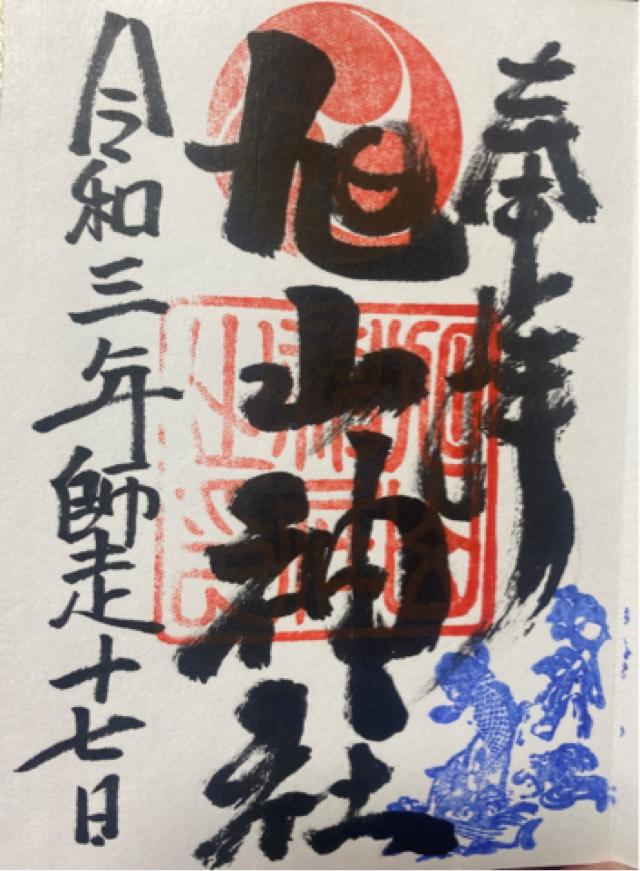 奉拝
旭山神社
令和三年師走十七日